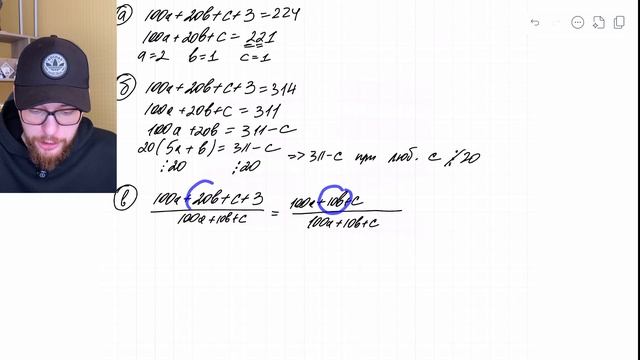 а) 100a + 20b + c + 3 = 224
100a + 20b + c = 221
a = 2 b = 1 c = 1
б) 100a + 20b + c + 3 = 314
100a + 20b + c = 311
100a + 20b = 311 - c
20(5a + b) = 311 - c => 311 - c при люб. c ⋮̸ 20
⋮20 ⋮20
в) 100a + 20b + c + 3 / 100a + 10b + c = 100a + 10b + c / 100a + 10b + c
adidas